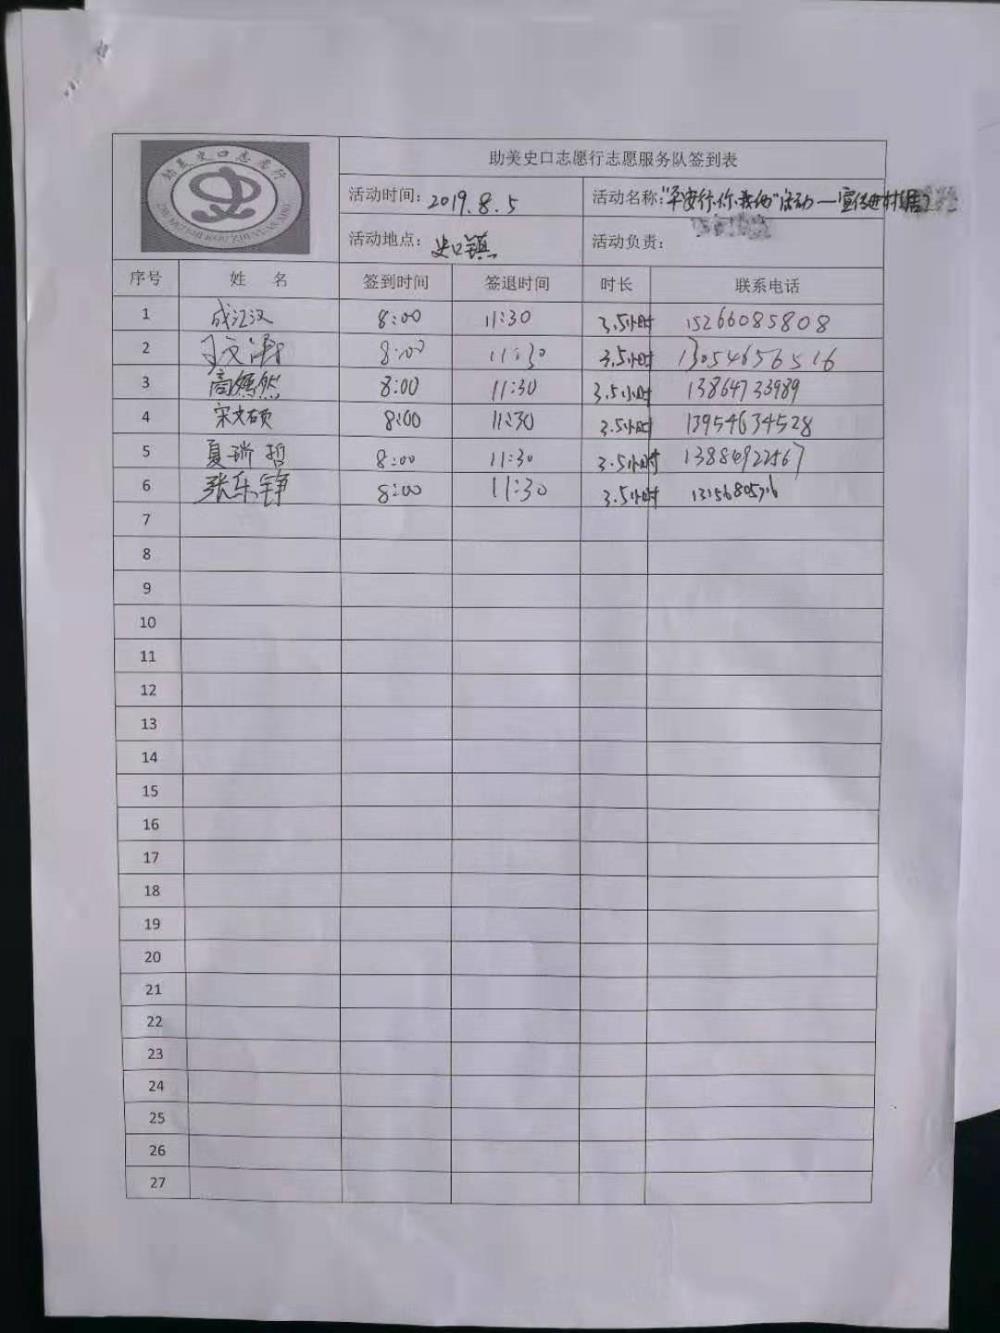 助美史口志愿行
ZHU MEI SHI KOU ZHI YUAN XING
助美史口志愿行志愿服务队签到表
活动时间：2019.8.5 活动名称："平安行·你我他"活动—宣传进村居
活动地点：史口镇 活动负责：
序号 姓 名 签到时间 签退时间 时长 联系电话
1 成江汉 8:00 11:30 3.5小时 15266085808
2 文 8:00 11:30 3.5小时 13054656516
3 高嫣然 8:00 11:30 3.5小时 13864733989
4 宋文硕 8:00 11:30 3.5小时 13954634528
5 夏瑞哲 8:00 11:30 3.5小时 13884922567
6 张东铮 8:00 11:30 3.5小时
7
8
9
10
11
12
13
14
15
16
17
18
19
20
21
22
23
24
25
26
27